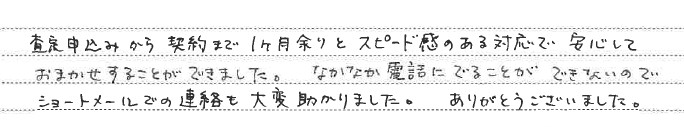 査定申込みから契約まで1ヶ月余りとスピード感のある対応で 安心して
おまかせすることができました。 なかなか電話にでることができないので
ショートメールでの連絡も大変助かりました。 ありがとうございました。